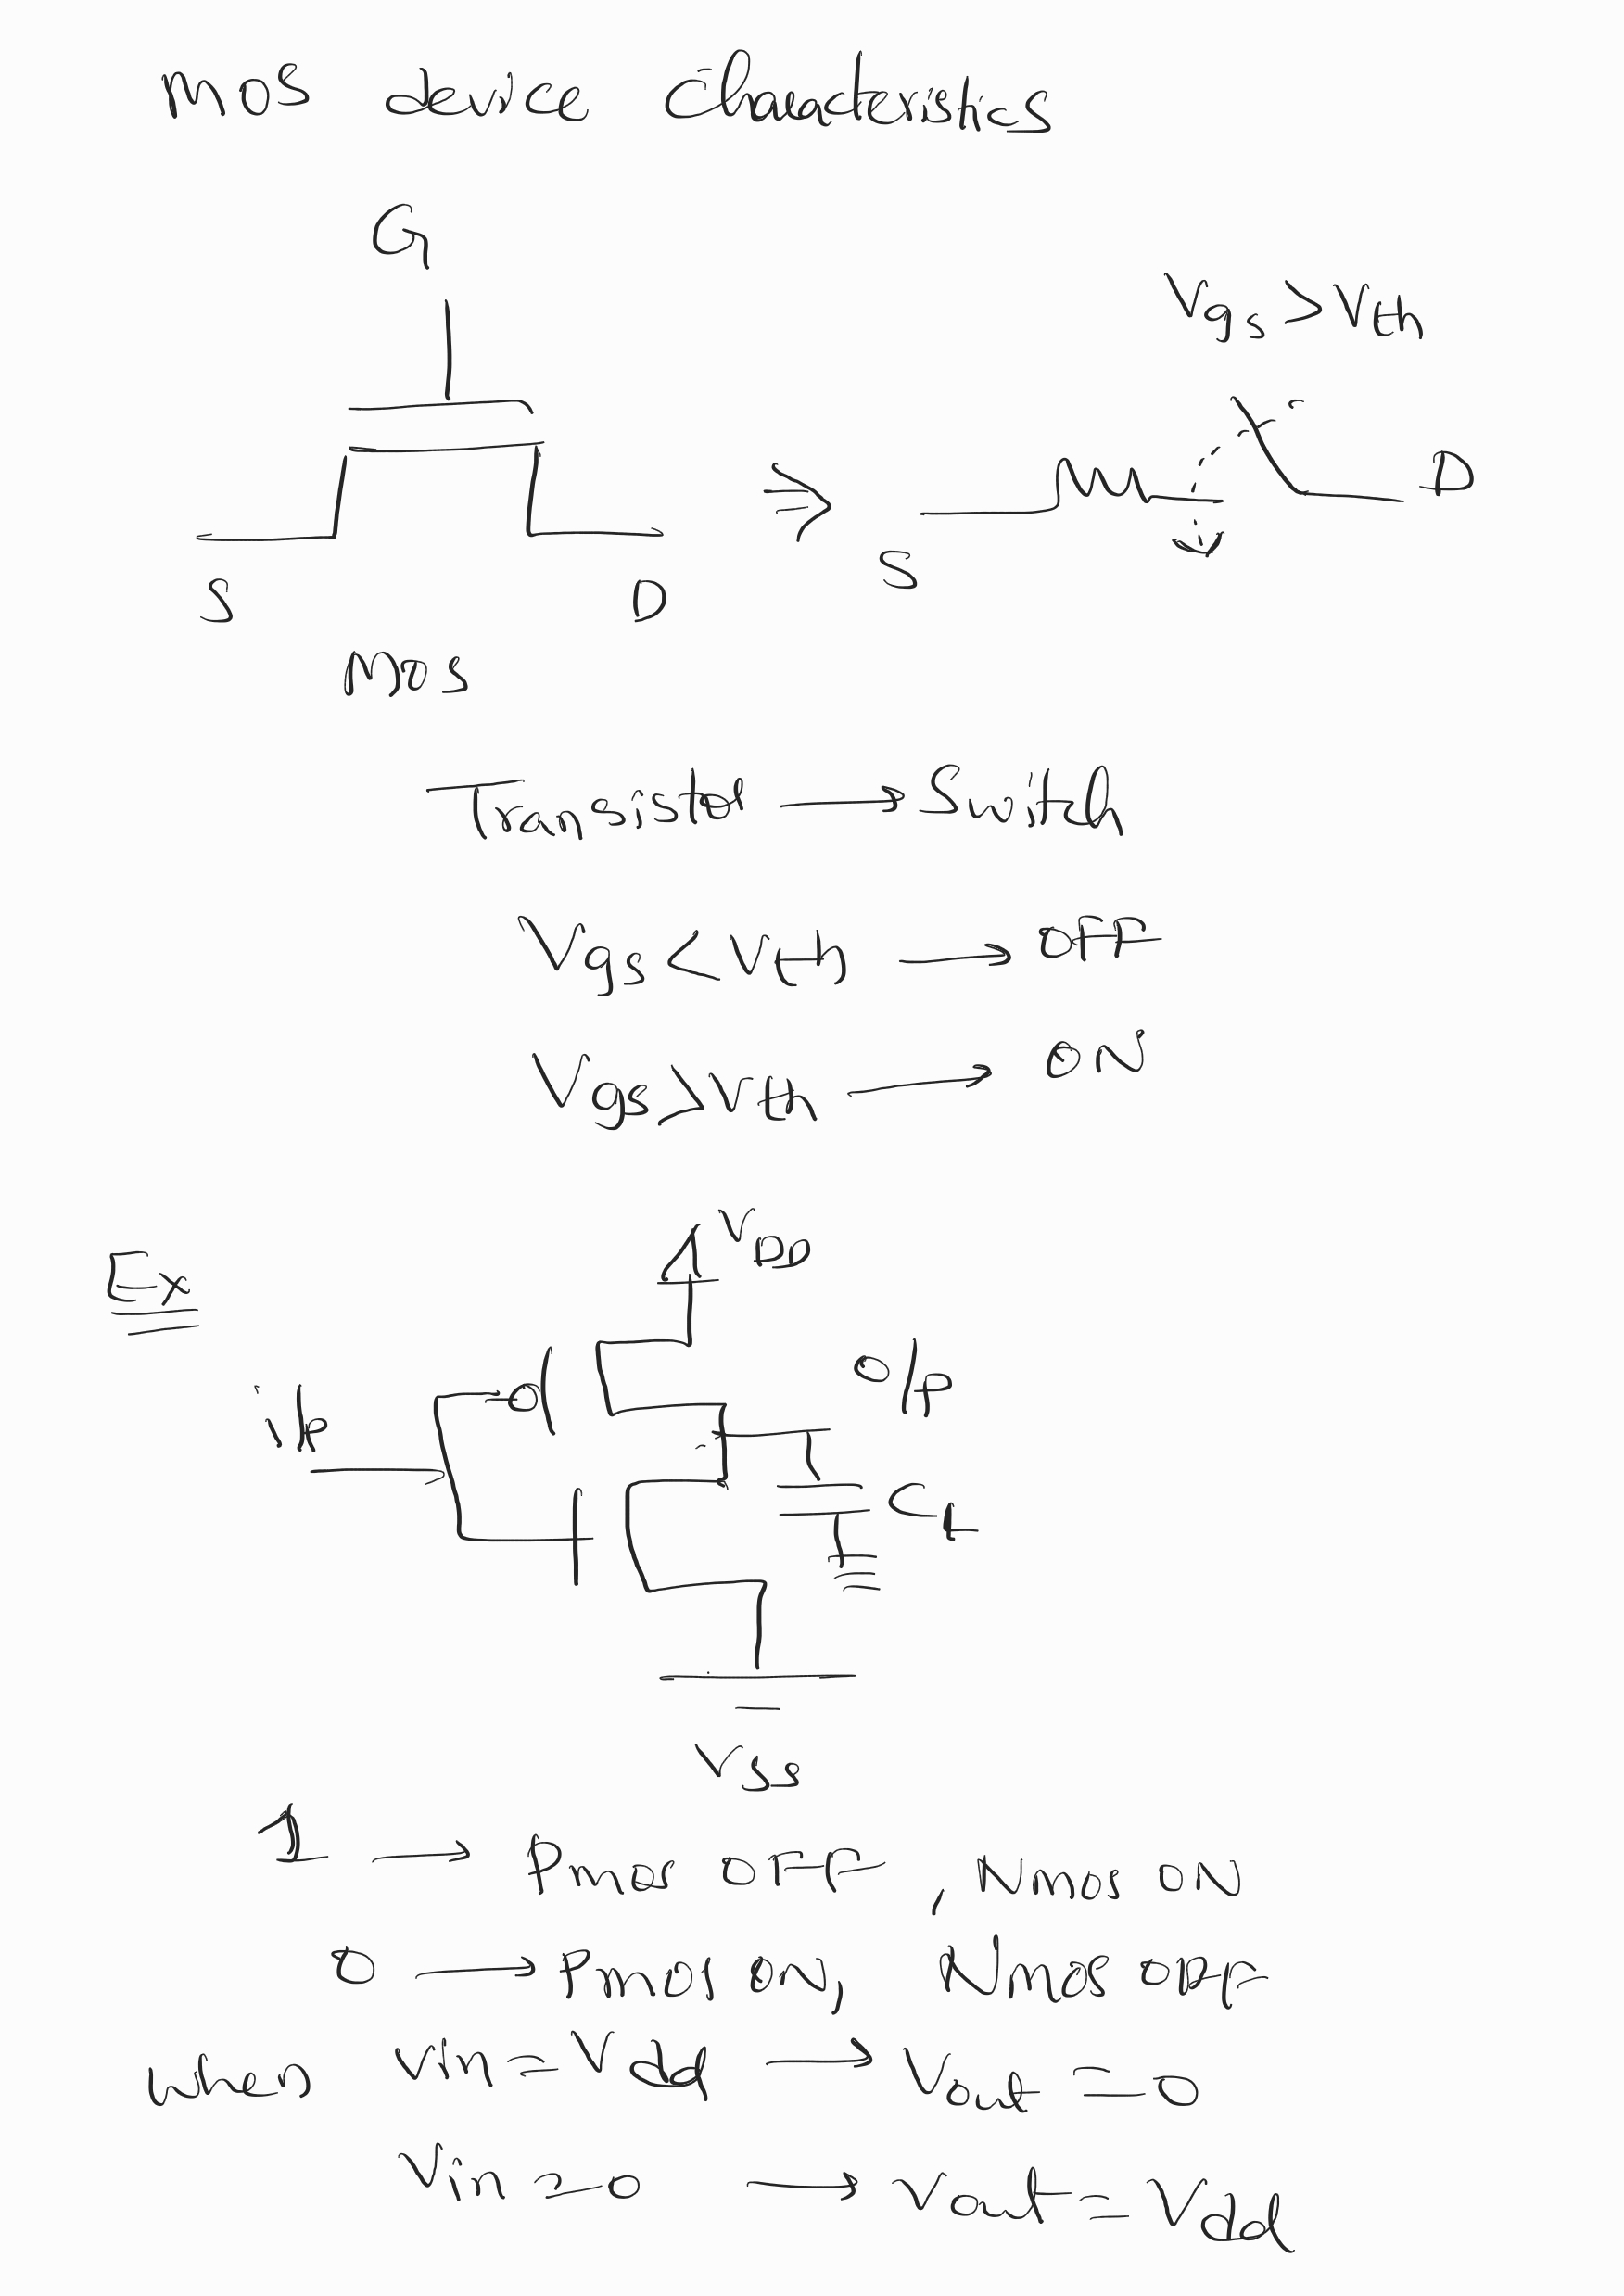 MOS device Characteristics
G
Vgs > Vth
S D
S D
MOS
Transistor → Switch
Vgs < Vth → OFF
Vgs > Vth → ON
Ex
VDD
i/p
o/p
CL
Vss
1 → Pmos OFF, Nmos ON
0 → Pmos ON, Nmos OFF
when Vin = Vdd → Vout = 0
Vin = 0 → Vout = Vdd